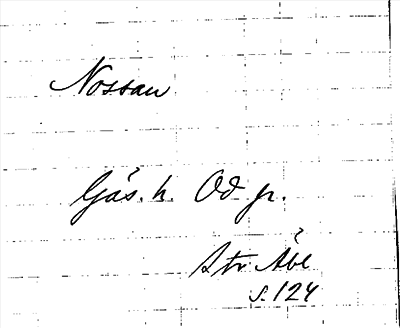 Nossan
Gäs. h. Od ſn.
Str. Åbl
s. 124